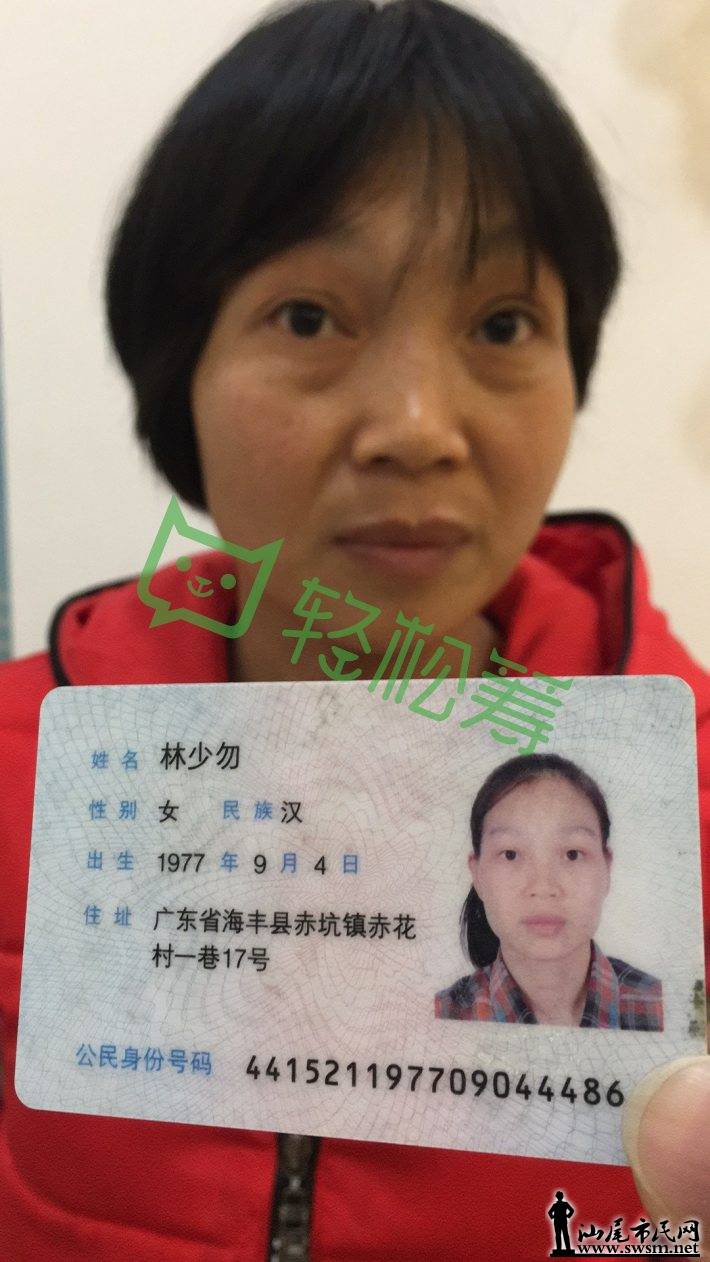 轻松筹
姓名 林少勿
性别 女 民族 汉
出生 1977 年 9 月 4 日
住址 广东省海丰县赤坑镇赤花
村一巷17号
公民身份号码 441521197709044486
汕尾市民网
www.swsm.net